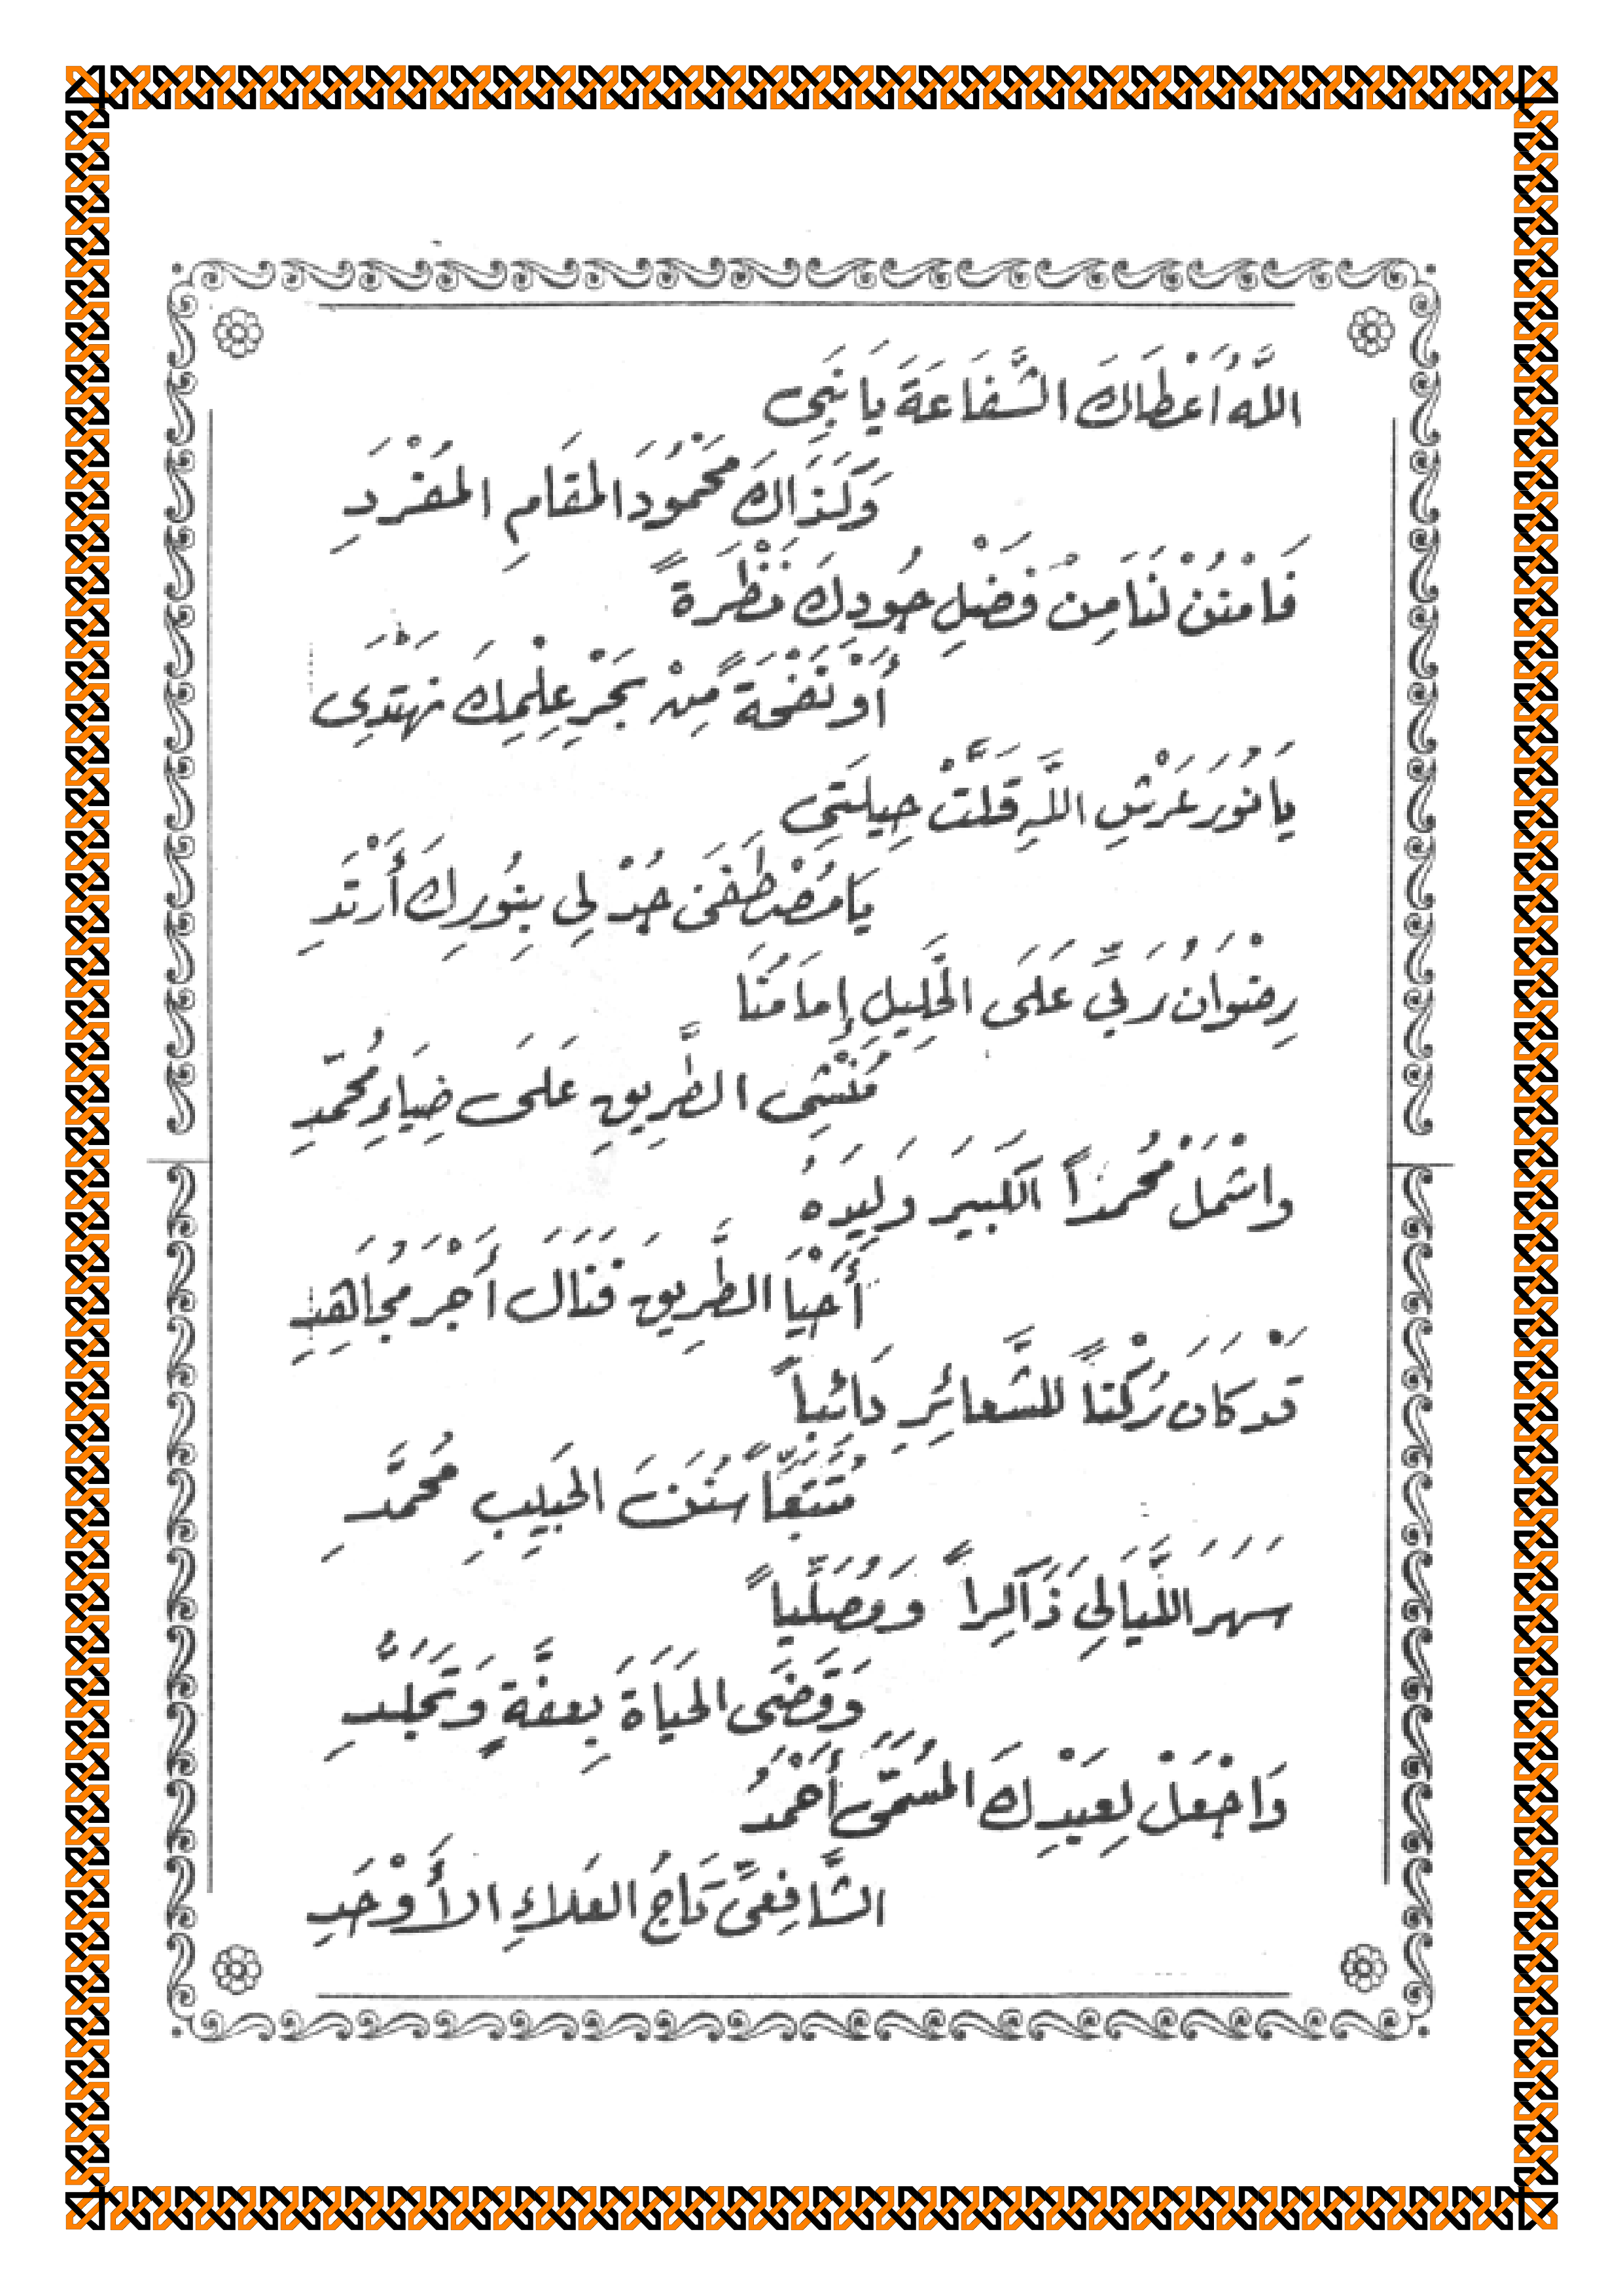 اللَّهُ أَعْطَاكَ الشَّفَاعَةَ يَا نَبِى
وَكَذَاكَ مَحْمُودَ المَقَامِ المُفْرَدِ
فَامْنُنْ لَنَا مِنْ فَضْلِ جُودِكَ نَظْرَةً
أَوْ نَفْحَةً مِنْ بَحْرِ عِلْمِكَ نَهْتَدِى
يَا نُورَ عَرْشِ اللَّهِ قَلَّتْ حِيلَتِى
يَا مُصْطَفَى جُدْ لِى بِنُورِكَ أَرْتَدِ
رِضْوَانُ رَبِّى عَلَى الجَلِيلِ إِمَامُنَا
مُنْشِى الطَّرِيقِ عَلَى ضِيَاءِ مُحَمَّدِ
وَاشْمَلْ مُحَمداً الكَبِيرَ وَلِيدَهُ
أَحْيَا الطَّرِيقَ فَنَالَ أَجْرَ مُجَاهِدِ
قَدْ كَانَ رُكْناً للشَّعائِرِ دَائِباً
مُتَتَبِّعاً سُنَنَ الحَبِيبِ مُحَمَّدِ
سَهَرَ اللَّيَالِىَ ذَاكِراً وَمُصَلِّياً
وَقَضَى الحَيَاةَ بِعِفَّةٍ وَتَجَلُّدِ
وَاجْعَلْ لِعَبْدِكَ المُسَمَّى أَحْمَدُ
الشَّافِعِىِّ تَاجُ العَلاءِ الأَوْحَدِ